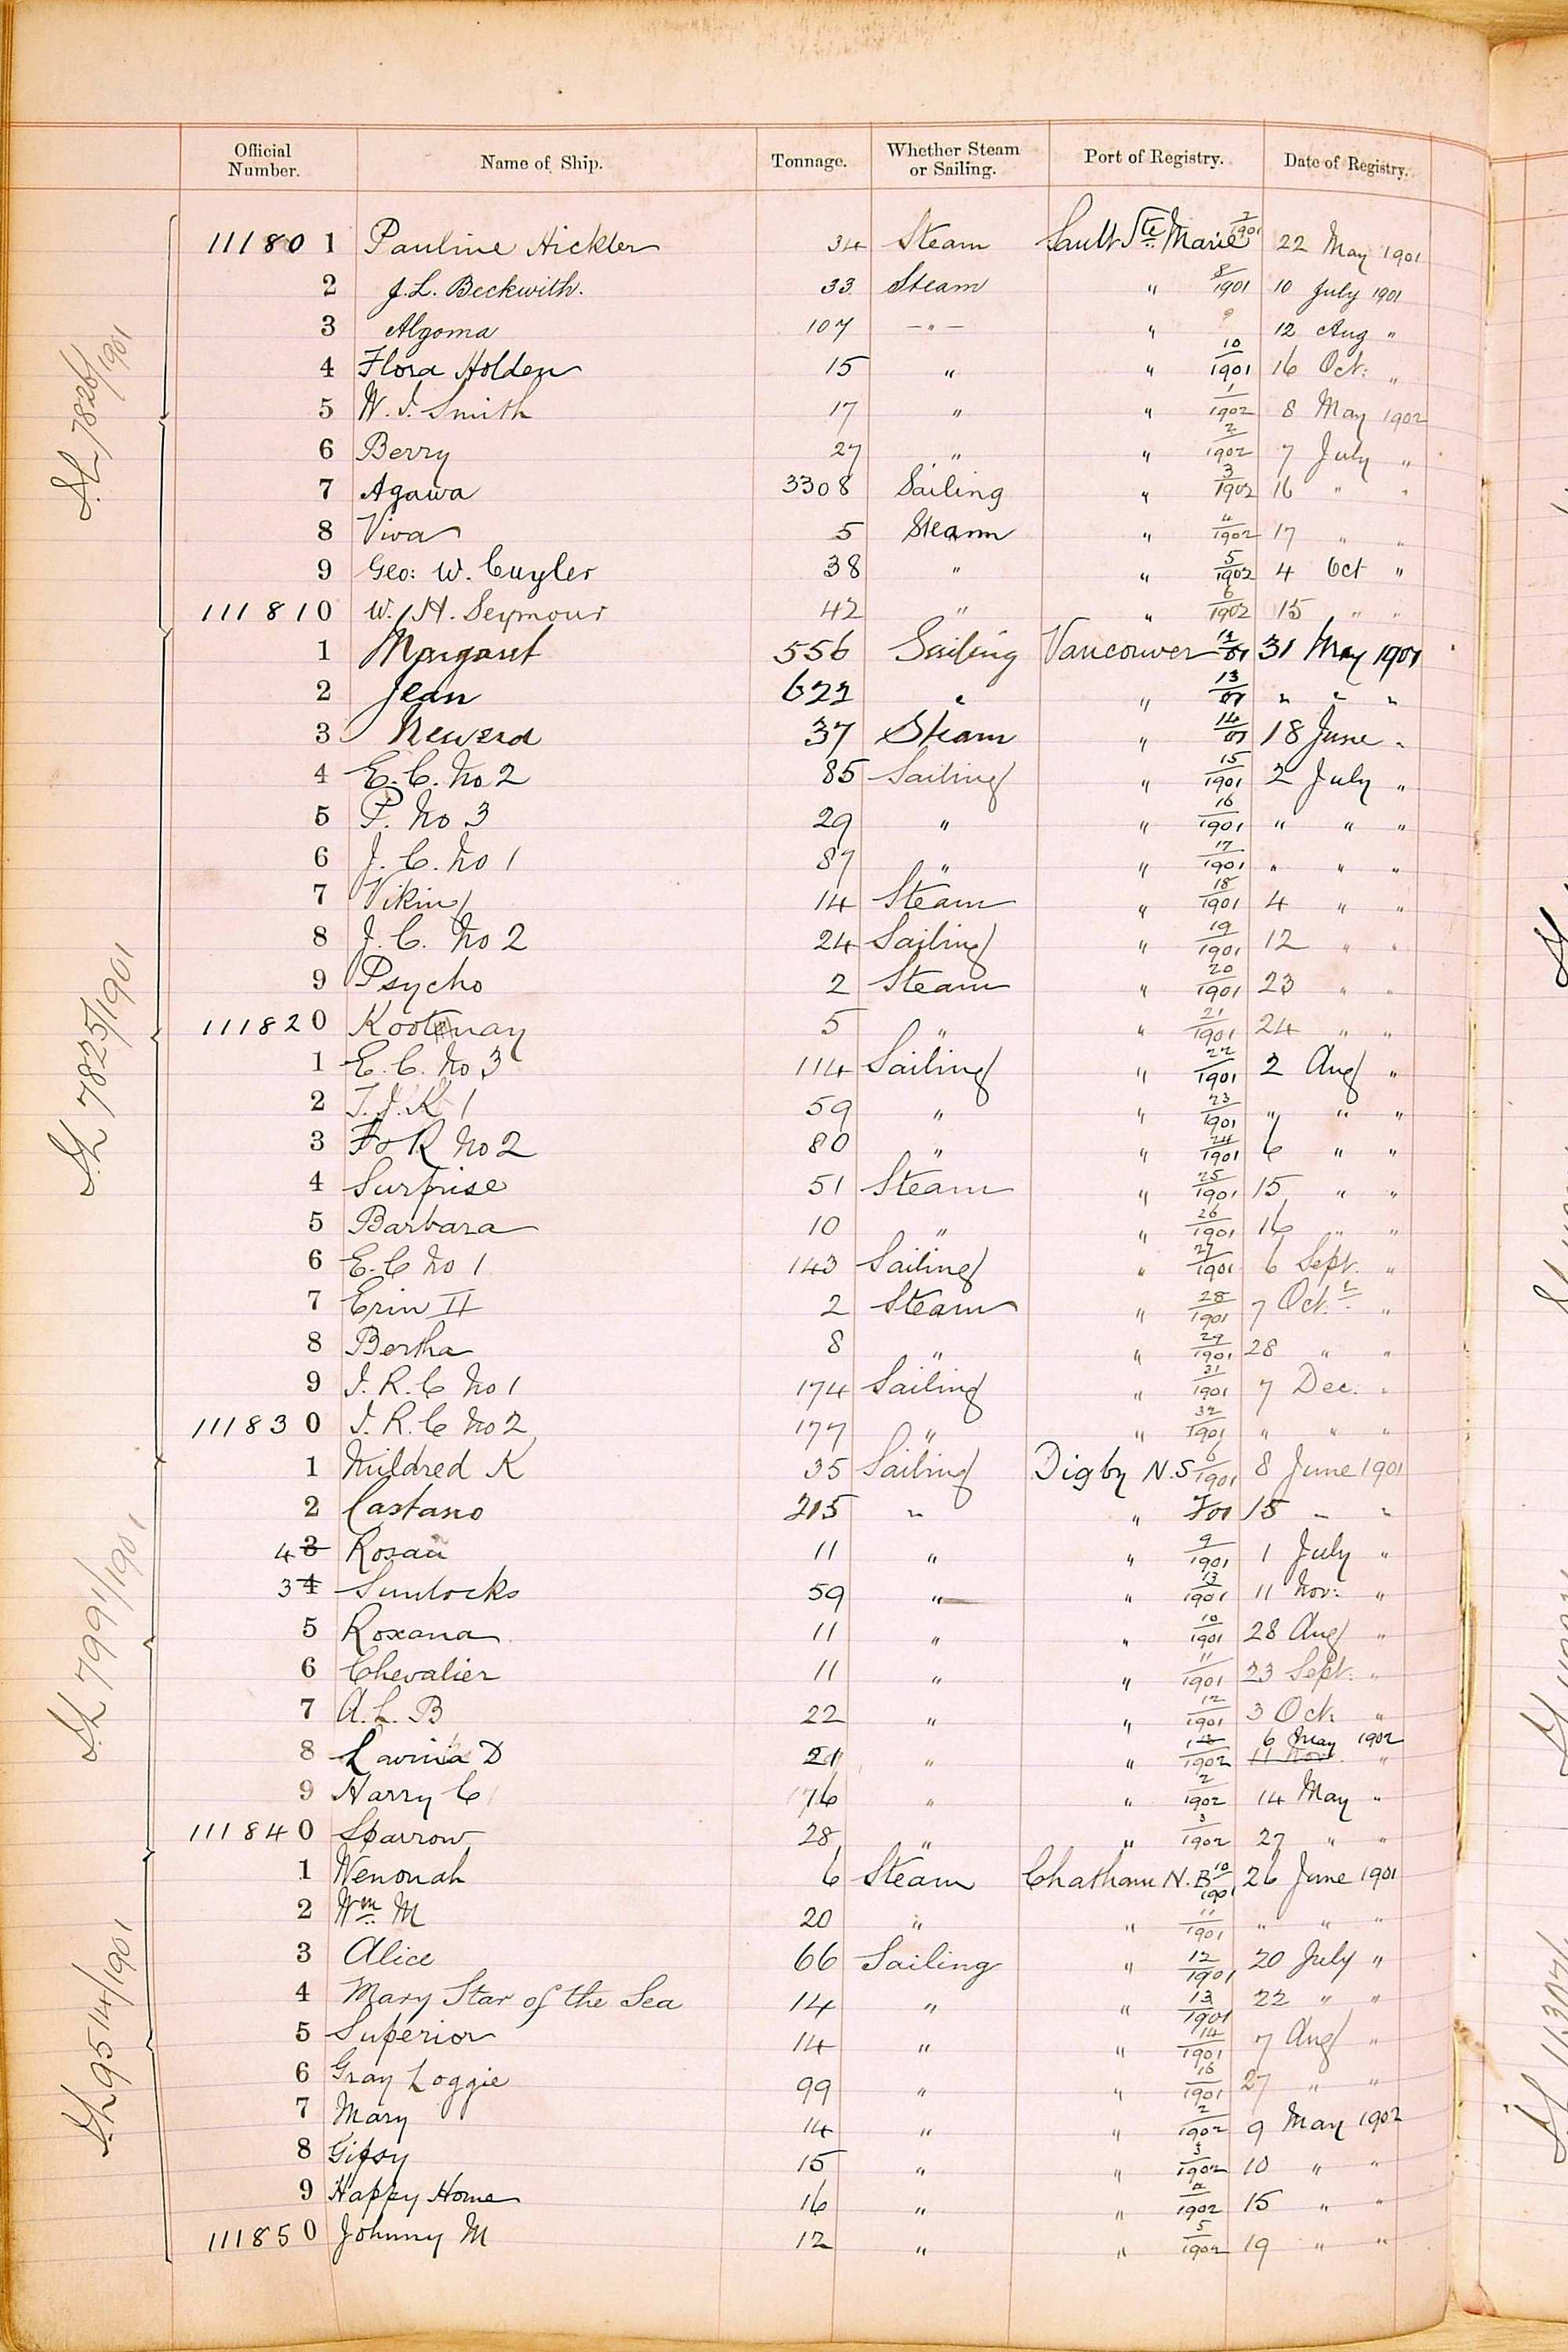 Official Number. Name of Ship. Tonnage. Whether Steam or Sailing. Port of Registry. Date of Registry.
111801 Pauline Hickler 34 Steam Sault Ste. Marie 7/1901 22 May 1901
2 J.L. Beckwith. 33 Steam " 8/1901 10 July 1901
3 Algoma 107 -"- " 9 12 Aug "
4 Flora Holden 15 " " 10/1901 16 Oct: "
5 W.J. Smith 17 " " 1/1902 8 May 1902
6 Berry 27 " " 2/1902 7 July "
7 Agawa 3308 Sailing " 3/1902 16 " "
8 Viva 5 Steam " 4/1902 17 " "
9 Geo: W. Cuyler 38 " " 5/1902 4 Oct "
111810 W. H. Seymour 42 " " 6/1902 15 " "
1 Margaret 556 Sailing Vancouver 12/01 31 May 1901
2 Jean 622 " " 13/01 " " "
3 37 Steam " 14/01 18 June "
4 E.C. No 2 85 Sailing " 15/1901 2 July "
5 P. No 3 29 " " 16/1901 " " "
6 J.C. No 1 87 " " 17/1901 " " "
7 Viking 14 Steam " 18/1901 4 " "
8 J.C. No 2 24 Sailing " 19/1901 12 " "
9 Psycho 2 Steam " 20/1901 23 " "
111820 Kootenay 5 " " 21/1901 24 " "
1 E.C. No 3 114 Sailing " 22/1901 2 Aug "
2 T.J.K 1 59 " " 23/1901 " " "
3 F o R No 2 80 " " 24/1901 6 " "
4 Surprise 51 Steam " 25/1901 15 " "
5 Barbara 10 " " 26/1901 16 " "
6 E.C No 1 143 Sailing " 27/1901 6 Sept. "
7 Erin II 2 Steam " 28/1901 7 Oct. "
8 Bertha 8 " " 29/1901 28 " "
9 I.R.C No 1 174 Sailing " 31/1901 7 Dec. "
111830 I.R.C No 2 177 " " 32/1901 " " "
1 Mildred K 35 Sailing Digby N.S 6/1901 8 June 1901
2 Castano 215 " " 7/01 15 " "
4 3 Rosau 11 " " 9/1901 1 July "
3 4 Sunlocks 59 " " 13/1901 11 Nov: "
5 Roxana 11 " " 10/1901 28 Aug "
6 Chevalier 11 " " 11/1901 23 Sept. "
7 A.L.B 22 " " 12/1901 3 Oct. "
8 Lavinia D 21 " " 1/1902 6 May 1902 11 Nov "
9 Harry C 76 " " 2/1902 14 May "
111840 Sparrow 28 " " 3/1902 27 " "
1 Wenonah 6 Steam Chatham N.B 10/1901 26 June 1901
2 Wm. M 20 " " 11/1901 " " "
3 Alice 66 Sailing " 12/1901 20 July "
4 Mary Star of the Sea 14 " " 13/1901 22 " "
5 Superior 14 " " 14/1901 7 Aug "
6 Gray Loggie 99 " " 16/1901 27 " "
7 Mary 14 " " 2/1902 9 May 1902
8 Gipsy 15 " " 3/1902 10 " "
9 Happy Home 16 " " 4/1902 15 " "
111850 Johnny M 12 " " 5/1902 19 " "
7826/1901
7825/1901
7991/1901
9514/1901